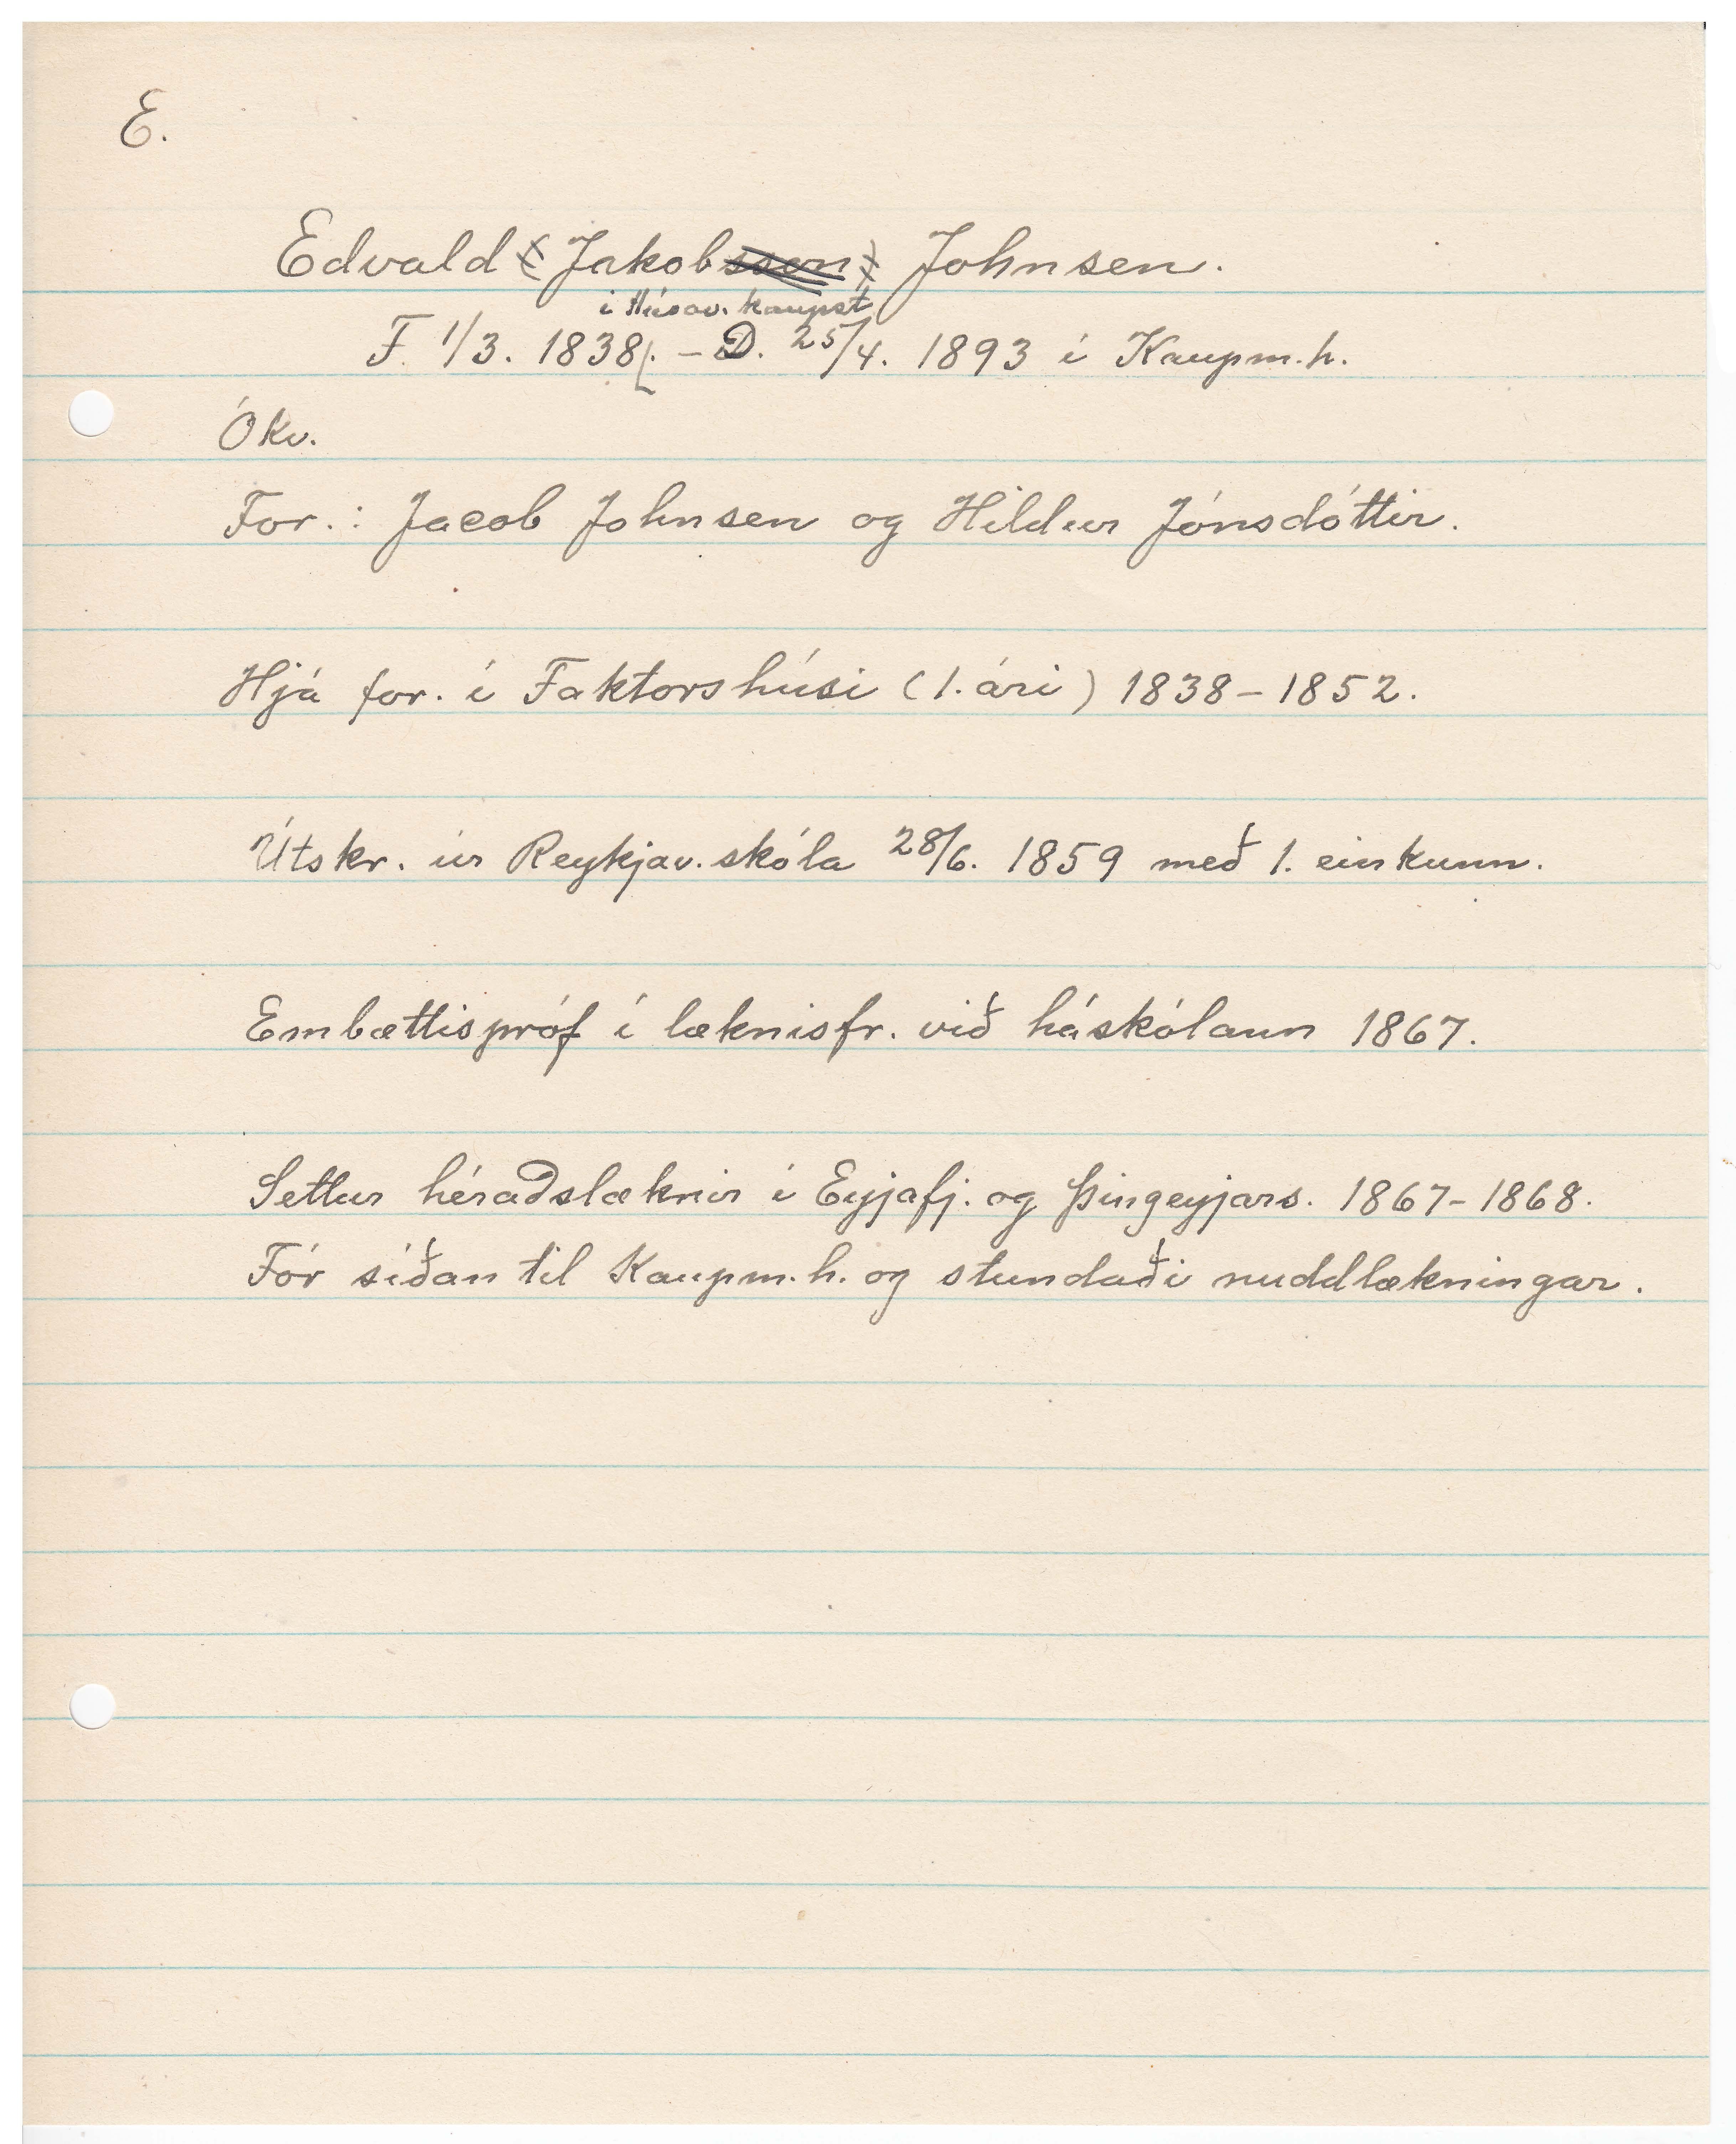 E.
Edvald Jakob Johnsen.
i Húsav. kaupst
F. 1/3. 1838. - D. 25/4. 1893 í Kaupm.h.
Ókv.
For.: Jacob Johnsen og Hildur Jónsdóttir.
Hjá for. í Faktorshúsi (1. ári) 1838-1852.
Útskr. úr Reykjav. skóla 28/6. 1859 með 1. einkunn.
Embættispróf í læknisfr. við háskólann 1867.
Settur héraðslæknir í Eyjafj. og Þingeyjars. 1867-1868.
Fór síðan til Kaupm.h. og stundaði nuddlækningar.